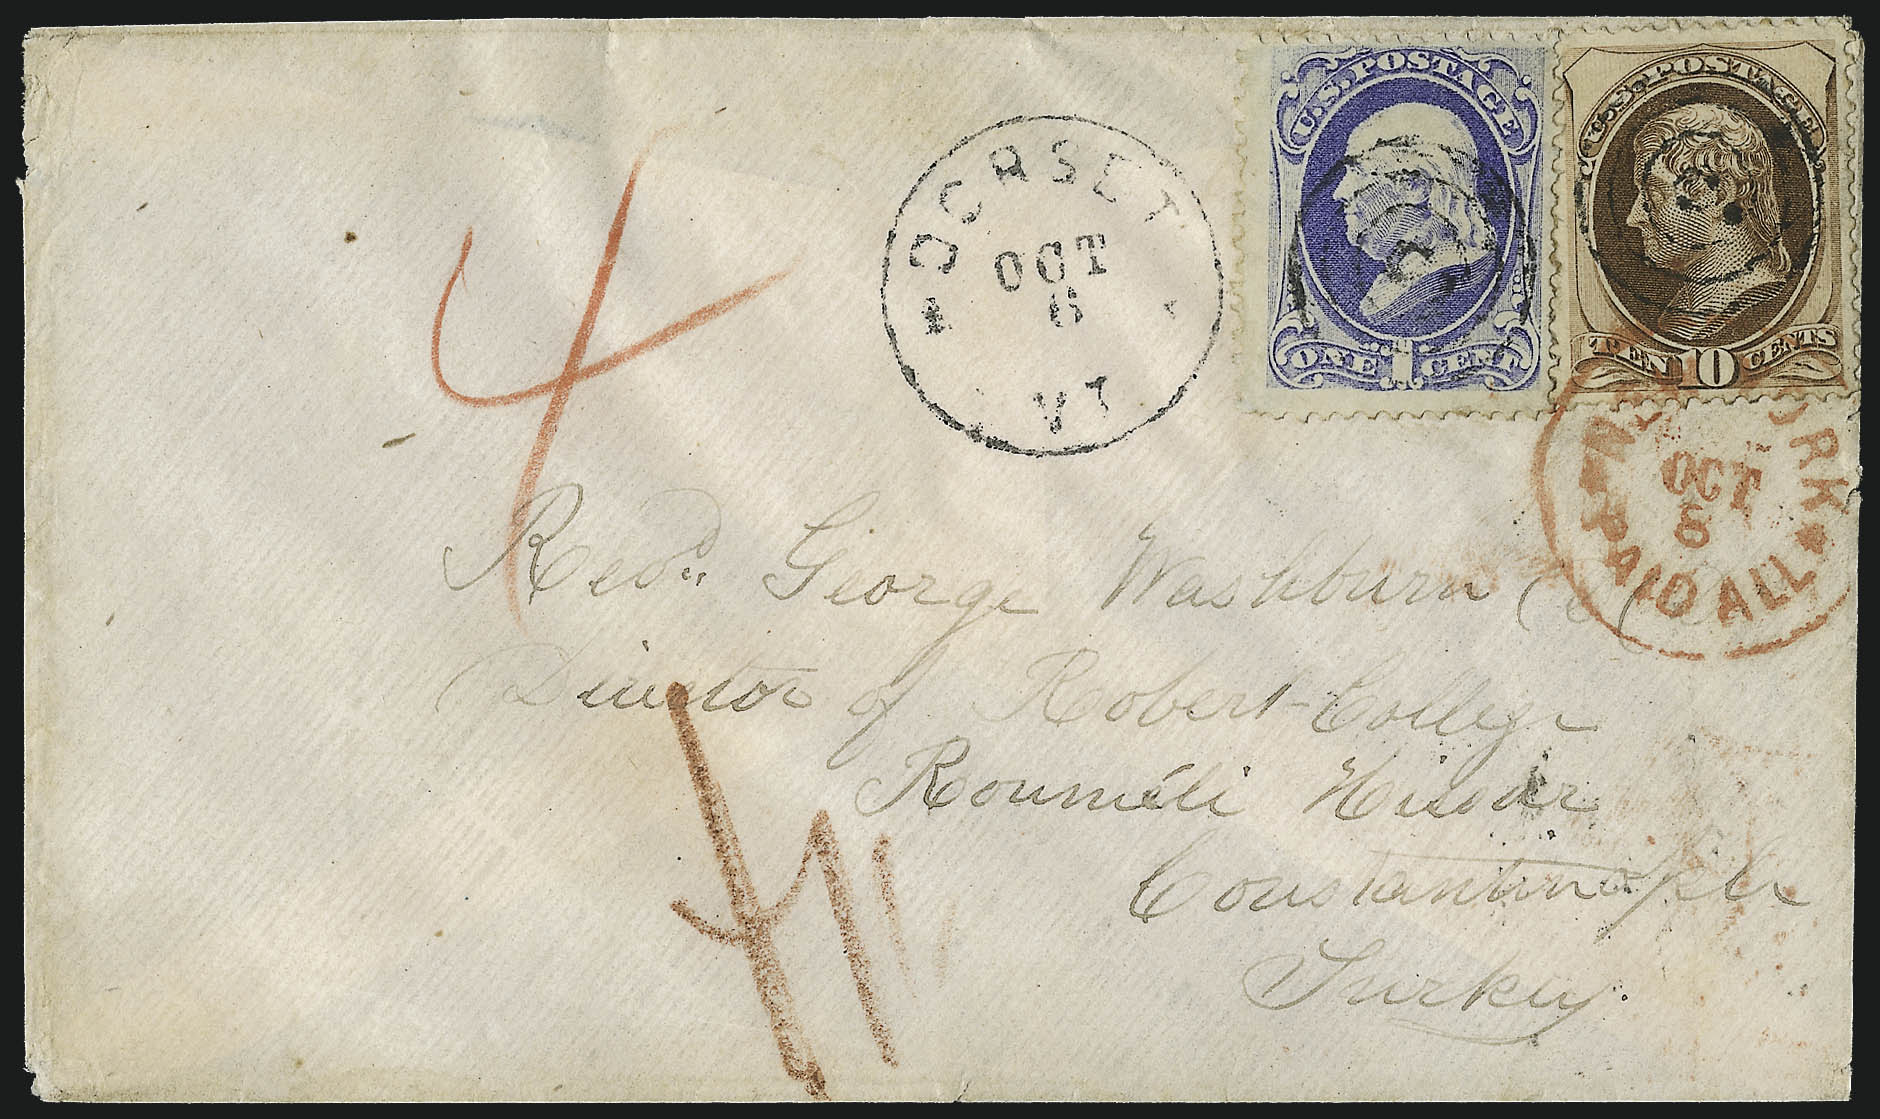 U.S. POSTAGE
ONE 1 CENT
U.S. POSTAGE
TEN 10 CENTS
DORSET
OCT
6
VT
4
YORK
OCT
8
PAID ALL
Revd. George Washburn
Director of Robert College
Rouméli Hissar
Constantinople
Turkey.